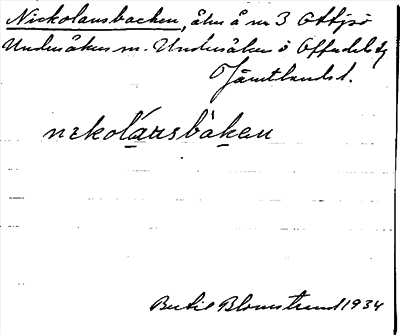 Nickolausbacken, åker å nr 3 Ottsjö
Undersåkers sn. Undersåker o Offerdals tg
Jämtlands l.
nɪkolásbàkeu
Bertil Blomstrand 1934